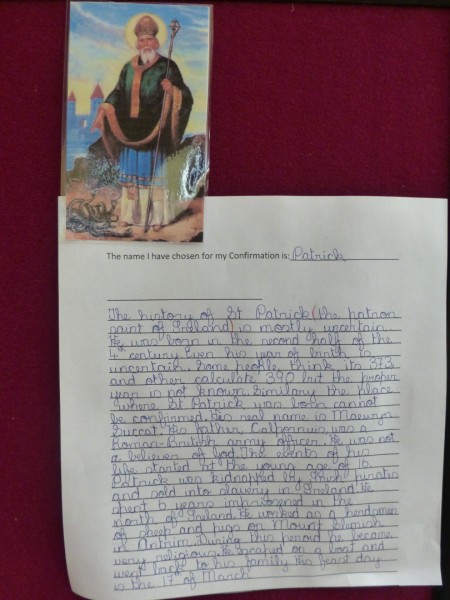 The name I have chosen for my Confirmation is: Patrick
The history of St Patrick (the patron
saint of Ireland) is mostly uncertain.
He was born in the second half of the
4th century. Even his year of birth is
uncertain. Some people think its 373
and other calculate 390 but the proper
year is not known. Similary the place
where St Patrick was born cannot
be confirmed. His real name is Maewyn
Succat. His father Calpornuis was a
Roman-British army officer. He was not
a believer of God. The events of his
life started at the young age of 16.
Patrick was kidnapped by Irish pirates
and sold into slavery in Ireland. He
spent 6 years imprisoned in the
north of Ireland. He worked as a herdsman
of sheep and pigs on Mount Slemish
in Antrim. During this period he became
very religious. He escaped on a boat and
went back to his family. His feast day
is the 17th of March